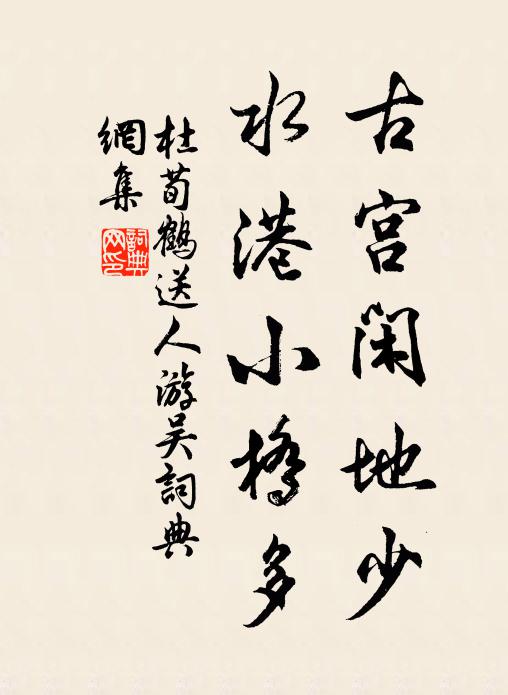 古宫閑地少
水港小橋多
杜荀鶴送人游吴詞典
網集
詞典網印